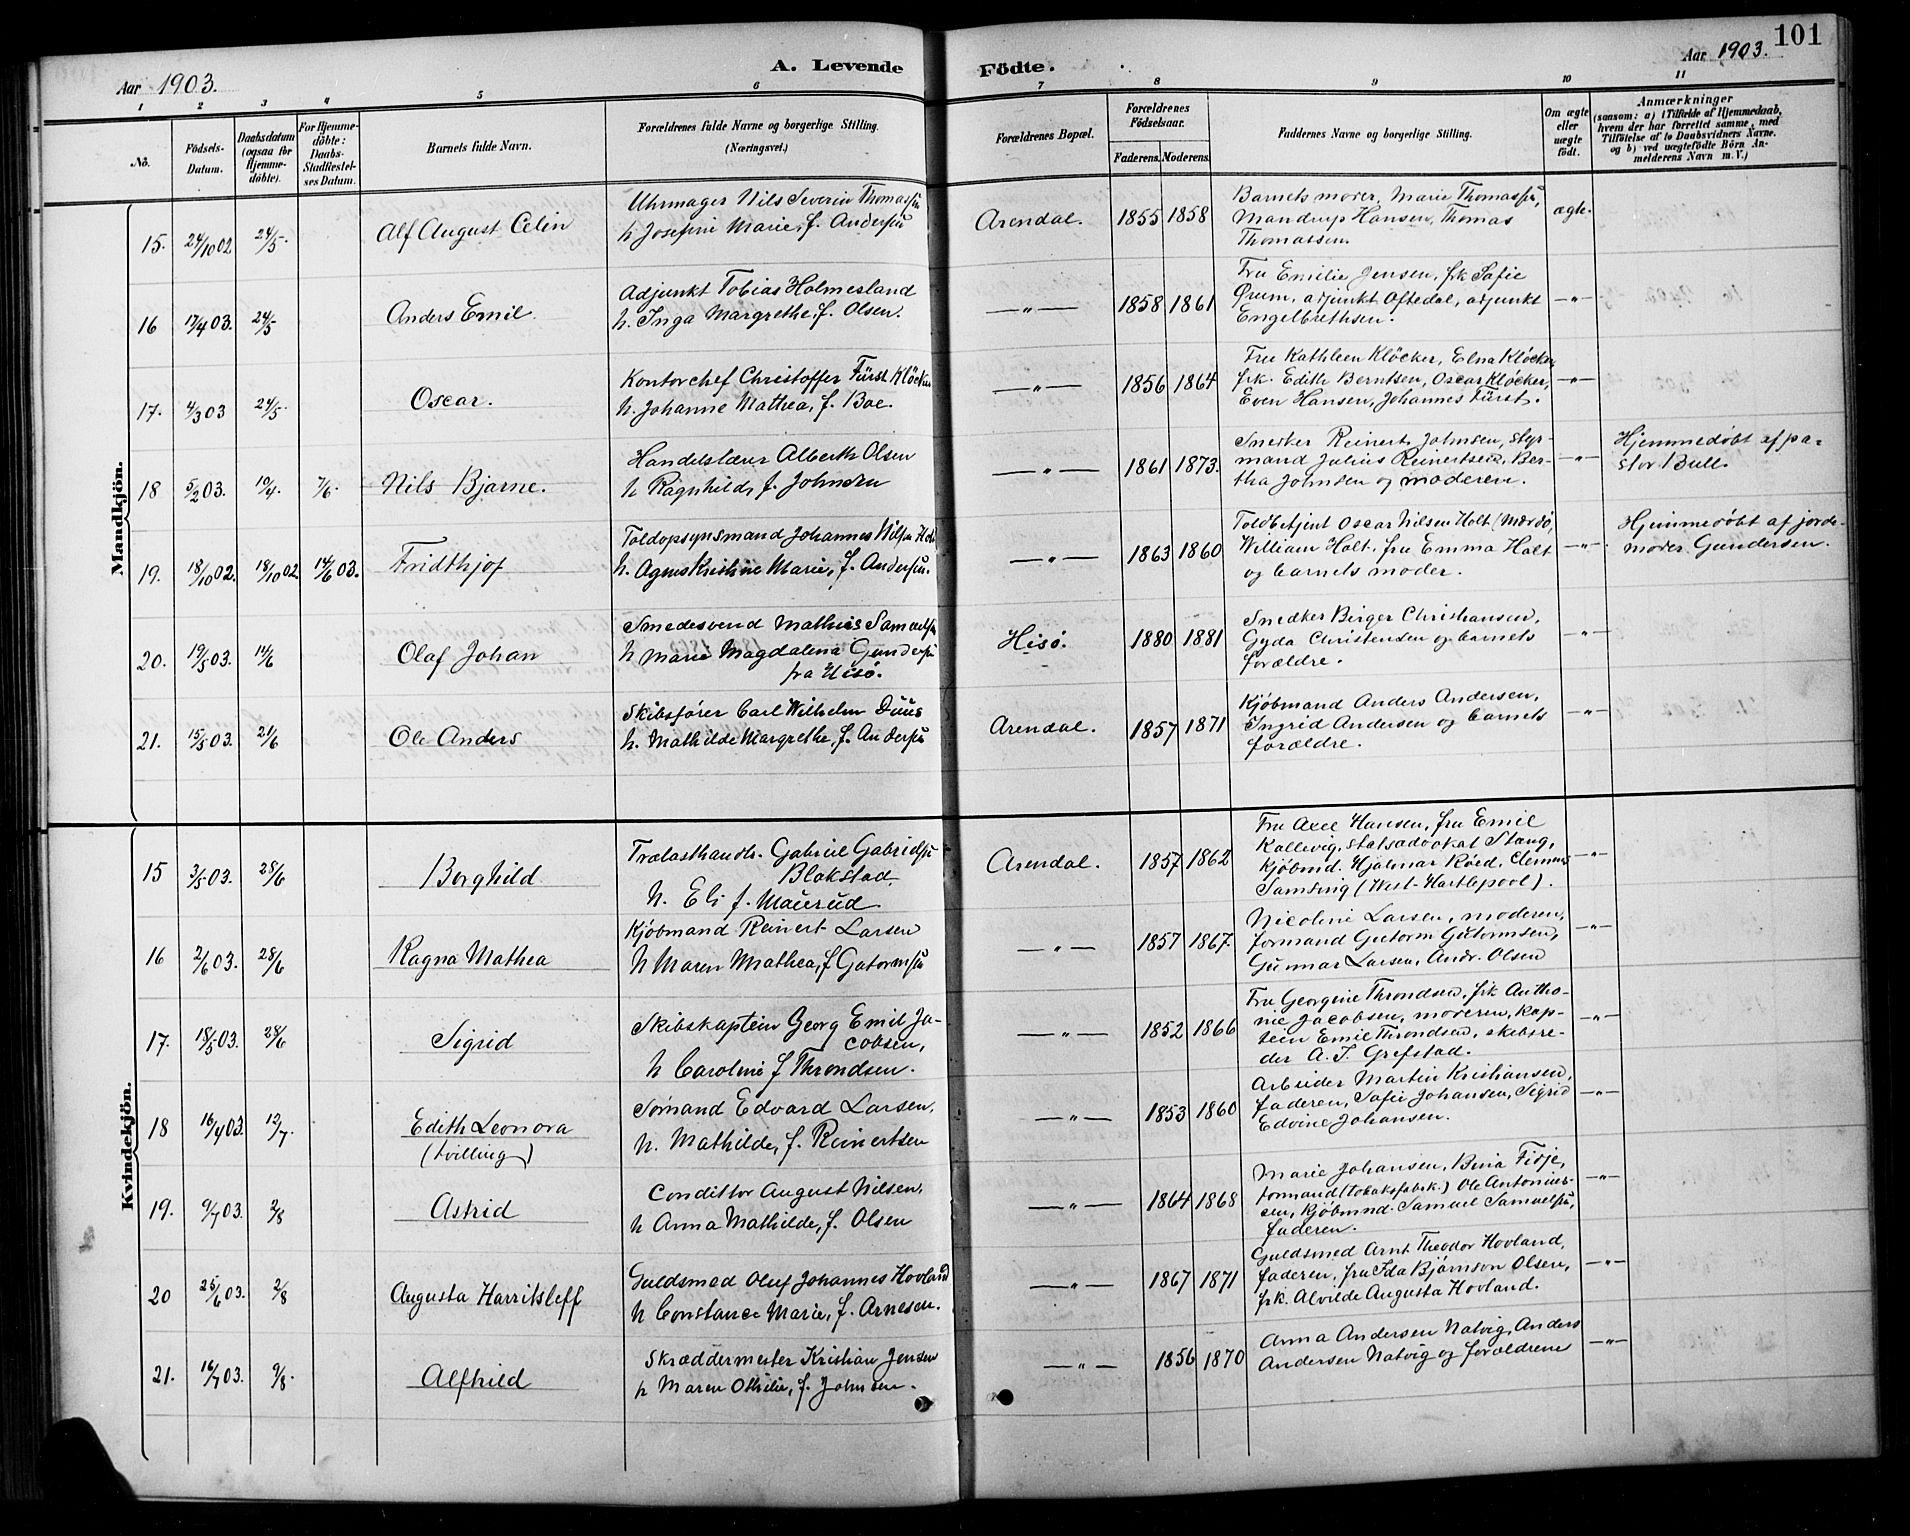 Aar 1903.
A. Levende
Födte.
Aar 1903.
101
1 2 3 4 5 6 7 8 9 10 11
No.
Födsels-
Datum.
Daabsdatum
(ogsaa for
Hjemme-
döbte).
For Hjemme-
döbte:
Daabs-
Stadfæstel-
ses Datum.
Barnets fulde Navn.
Forældrenes fulde Navne og borgerlige Stilling.
(Næringsvei.)
Forældrenes Bopæl.
Forældrenes
Födselsaar.
Faderens. Moderens.
Faddernes Navne og borgerlige Stilling.
Om ægte
eller
uægte
födt.
Anmærkninger
(saasom: a) i Tilfælde af Hjemmedaab,
hvem der har forrettet samme, med
Tilföielse af to Daabsvidners Navne.
og b) ved uægtefödte Börn An-
melderens Navn m. V.)
Mandkjön.
15. 24/10 02 24/5. Alf August Celin
Uhrmager Nils Severin Thomassen
h. Josefine Marie, f. Andersen
Arendal. 1855 1858
Barnets moder, Marie Thomassen,
Mandrup Hansen, Thomas
Thomassen.
ægte.
16 17/4 03. 24/5 Anders Emil.
Adjunkt Tobias Holmesland
h. Inga Margrethe, f. Olsen.
—„— 1858 1861
Fru Emilie Jensen, frk Sofie
Ørum, adjunkt Oftedal, adjunkt
Engelbrethsen.
—„—
17. 4/3 03 24/5. Oscar.
Kontorchef Christoffer Fürst Kløcker
h. Johanne Mathea, f. Boe.
—„— 1856 1864
Fru Kathleen Kløcker, Elna Kløcker,
frk. Edith Berntsen, Oscar Kløcker,
Even Hansen, Johannes Fürst.
—„—
18 5/2 03. 10/4. 7/6. Nils Bjarne.
Handelslærer Alberth Olsen
h Ragnhild, f. Johnsen
—„— 1861 1873.
Snedker Reinert Johnsen, styr-
mand Julius Reinertsen, Ber-
tha Johnsen og moderen.
—„—
Hjemmedøbt af pa-
stor Bull.
19. 18/10 02. 18/10 02 14/6 03. Fridthjof
Toldopsynsmand Johannes Nilsen Holt
h. Agnes Kristine Marie, f. Andersen.
—„— 1863 1860
Toldbetjent Oscar Nilsen Holt (Mærdø,
William Holt, fru Emma Holt
og barnets moder.
—„—
Hjemmedøbt af jorde-
moder Gundersen.
20. 19/5 03. 14/6 Olaf Johan
Smedesvend Mathias Samuelsen
h Marie Magdalena Gundersen
fra Hisø.
Hisø. 1880 1881
Snedker Birger Christiansen,
Gyda Christensen og barnets
forældre.
—„—
21. 15/5 03. 21/6 Ole Anders
Skibsfører Carl Wilhelm Duus
h. Mathilde Margrethe, f. Andersen
Arendal. 1857 1871
Kjøbmand Anders Andersen,
Ingrid Andersen og barnets
forældre.
—„—
Kvindekjön.
15 3/5 03. 28/6 Borghild
Trælasthandl. Gabriel Gabrielsen
Blakstad,
h. Eli f. Maurud
Arendal. 1857 1862
Fru Axel Hansen, fru Emil
Kallevig, statsadvokat Stang,
kjøbmd. Hjalmar Röed, Clemens
Samsing (West-Hartlepool).
—„—
16 2/6 03. 28/6 Ragna Mathea
Kjöbmand Reinert Larsen
h Maren Mathea, f Gutormsen
—„— 1857 1867.
Nicoline Larsen, moderen,
formand Gutorm Gutormsen,
Gunnar Larsen, Andr. Olsen
—„—
17. 18/5 03. 28/6 Sigrid
Skibskaptein Georg Emil Ja-
cobsen,
h Caroline f Throndsen.
—„— 1852 1866
Fru Georgine Throndsen, frk Antho-
nie Jacobsen, moderen, kap-
tein Emil Throndsen, skibsre-
der A. T. Grefstad.
—„—
18 16/4 03. 12/7. Edith Leonora
(tvilling)
Sømand Edvard Larsen,
h. Mathilde, f. Reinertsen
—„— 1853 1860
Arbeider Martin Kristiansen,
faderen, Sofie Johansen, Sigrid
Edvine Johansen.
—„—
19. 9/7 03. 2/8 Astrid
Condittor August Nilsen,
h Anna Mathilde, f. Olsen
—„— 1864 1868
Marie Johansen, Bina Fidje,
formand (tobaksfabrk.) Ole Antonius-
sen, kjøbmnd. Samuel Samuelsen,
faderen.
—„—
20 25/6 03. 2/8 Augusta Harritsleff
Guldsmed Oluf Johannes Hovland
h Constance Marie, f. Arnesen.
—„— 1867 1871
Guldsmed Arnt Theodor Hovland,
faderen, fru Ida Bjørnson Olsen,
frk. Alvilde Augusta Hovland.
—„—
21. 16/7 03. 9/8. Alfhild
Skræddermester Kristian Jensen
h Maren Othilie, f. Johnsen.
—„— 1856 1870
Anna Andersen Natvig, Anders
Andersen Natvig og forældrene
—„—